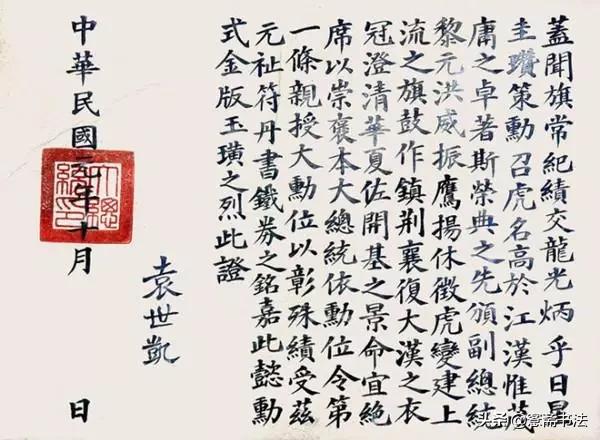 蓋聞旗常紀績交龍光炳乎日星
圭瓚策勳召虎名高於江漢惟茂
庸之卓著斯榮典之先頒副總統
黎元洪威振鷹揚休徵虎變建上
流之旗鼓作鎮荆襄復大漢之衣
冠澄清華夏佐開基之景命宜絶
席以崇褒本大總統依勳位令第
一條親授大勳位以彰殊績受茲
元祉符丹書鐵券之銘嘉此懿勳
式金版玉璜之烈此證
袁世凱
中華民國元年十月 日
大總統印
头条 @斋书法